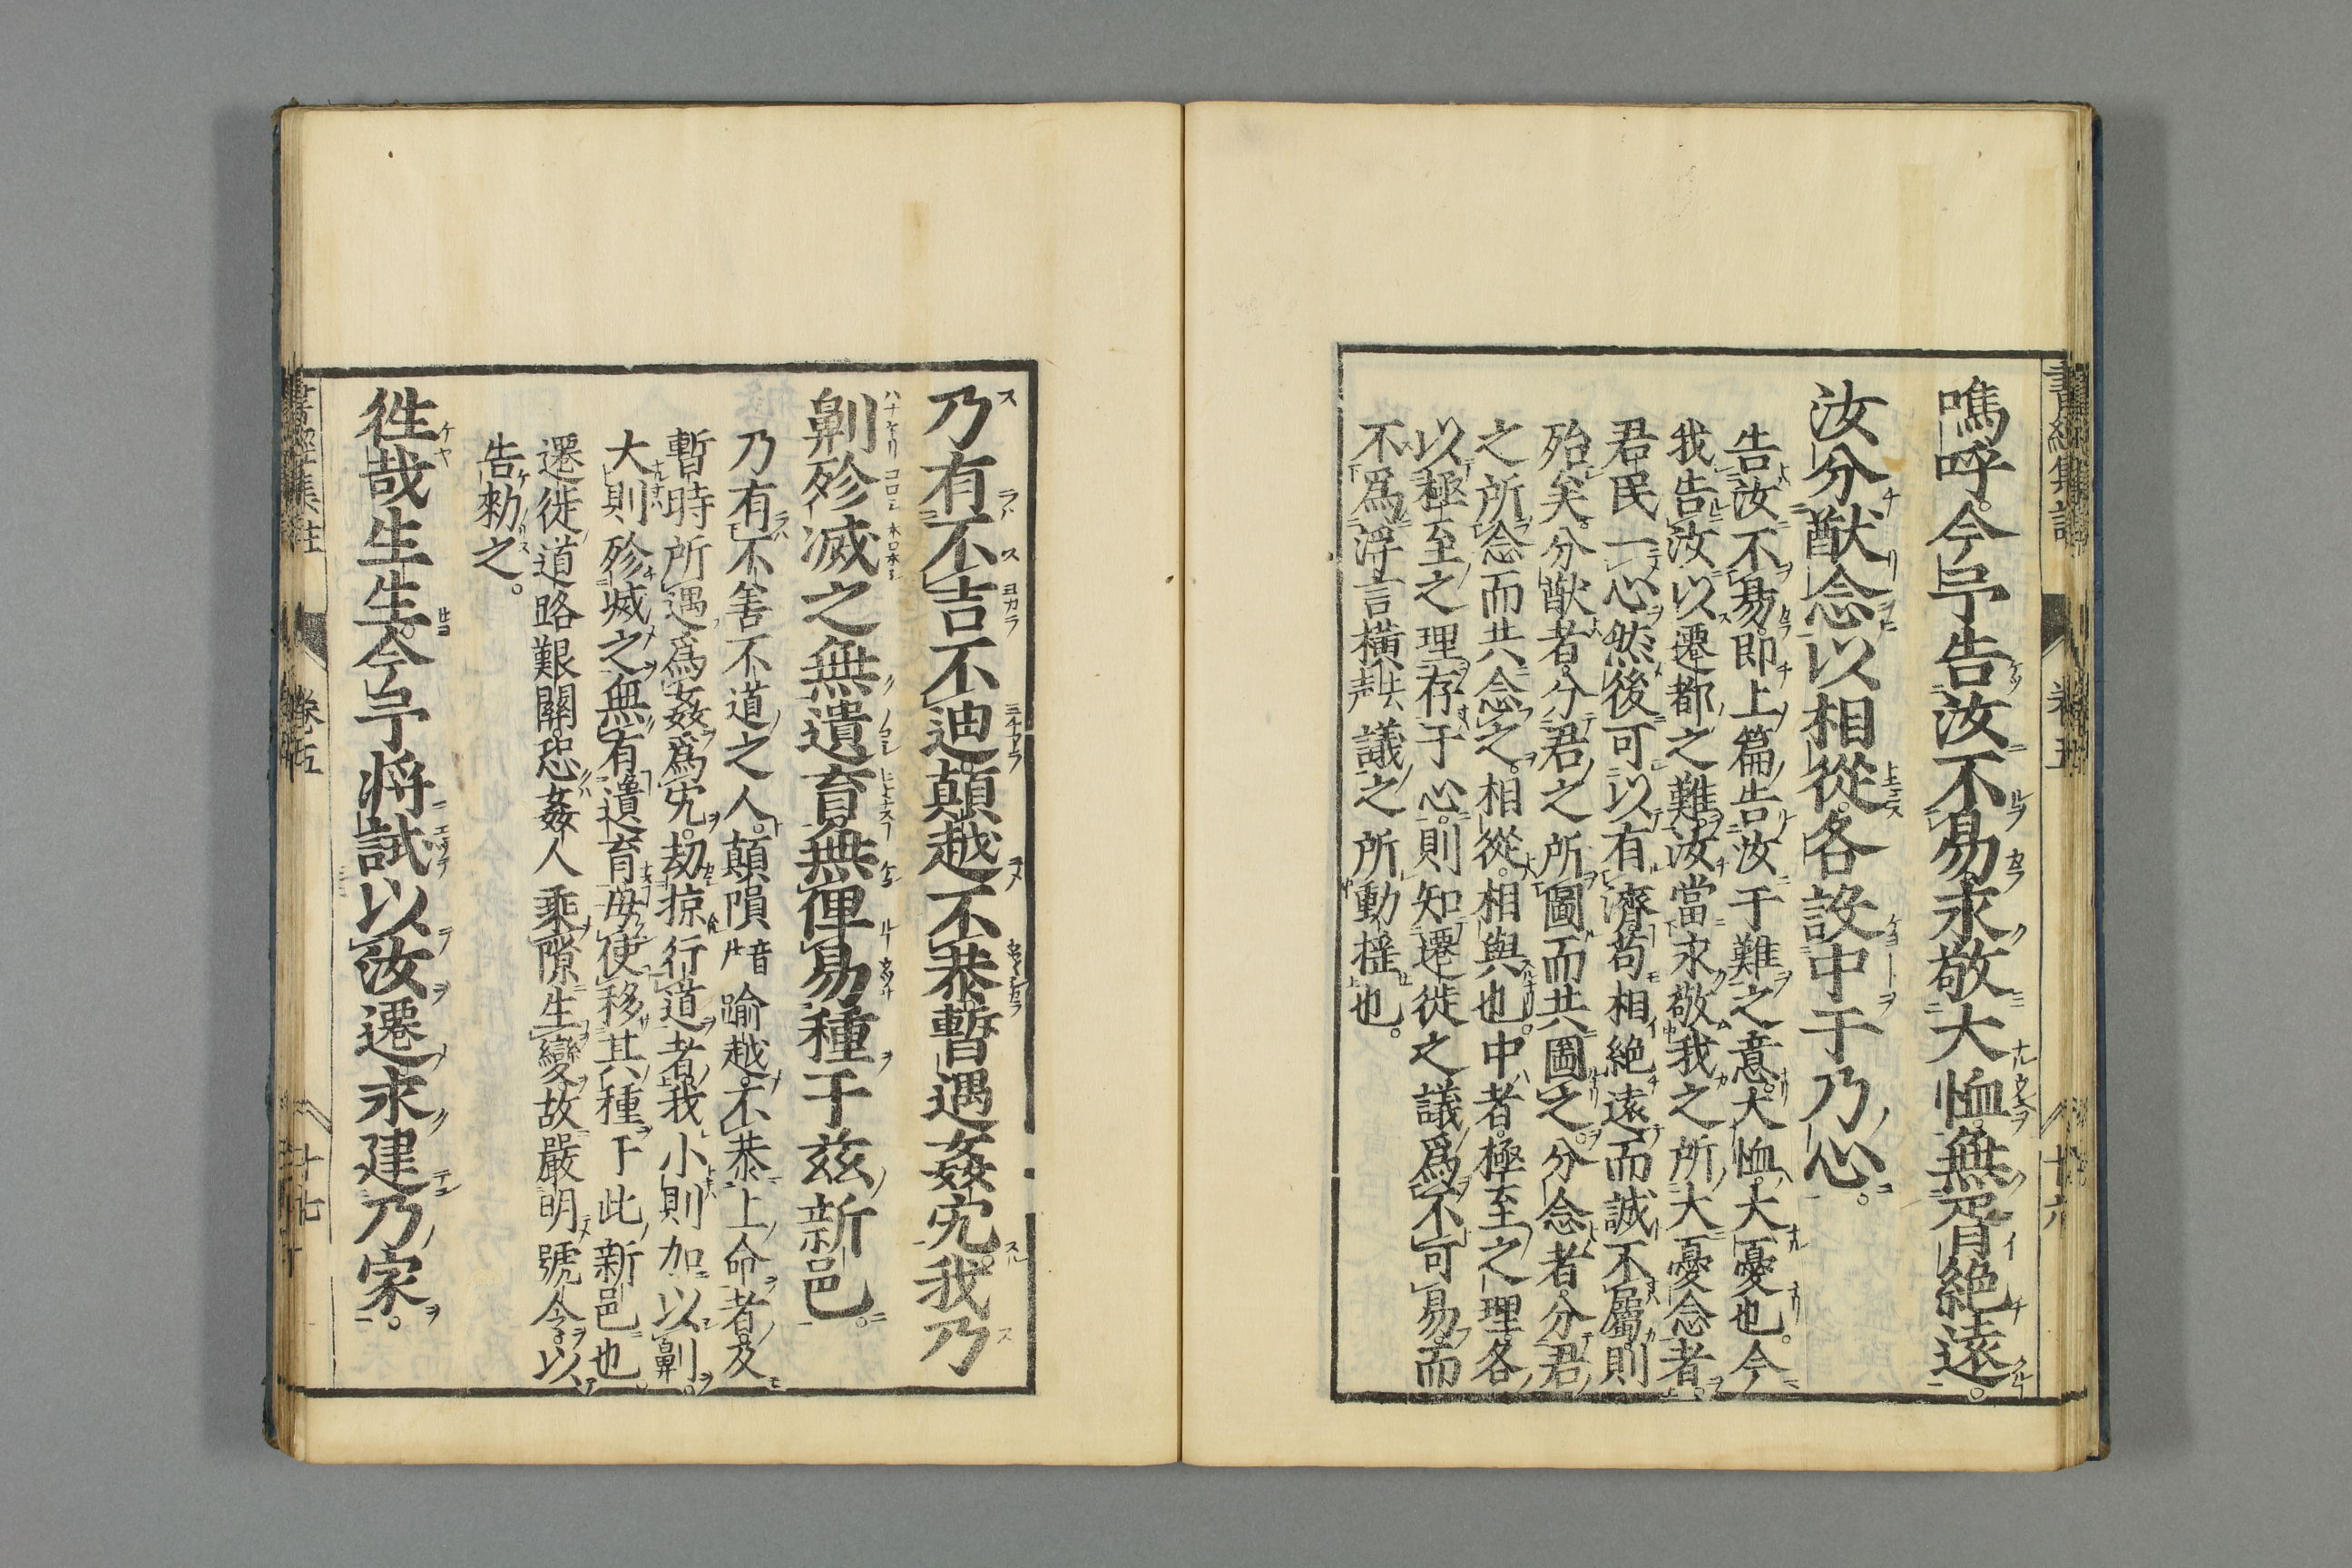 書經集註 卷五 十六
嗚呼。今予告汝不易。永敬大恤。無胥絶遠。
汝分猷念以相從。各設中于乃心。
告汝不易。即上篇告汝于難之意。大恤。大憂也。今
我告汝以遷都之難。汝當永敬我之所大憂念者。
君民一心。然後可以有濟。苟相絶遠而誠不屬。則
殆矣。分猷者。分君之所圖而共圖之。分念者。分君
之所念而共念之。相從。相與也。中者。極至之理。各
以極至之理存于心。則知遷徙之議。爲不可易。而
不爲浮言横議之所動揺也。
乃有不吉不迪。顛越不恭。暫遇姦宄。我乃
劓殄滅之無遺育。無俾易種于兹新邑。
乃有不善不道之人。顛隕踰越。不恭上命者。及
暫時所遇。爲姦爲宄。劫掠行道者。我小則加以劓。
大則殄滅之。無有遺育。毋使移其種于此新邑也。
遷徙道路艱關。恐姦人乘隙生變。故嚴明號令。以
告勑之。
徃哉生生。今予將試以汝遷。永建乃家。
書經集註 卷五 十七